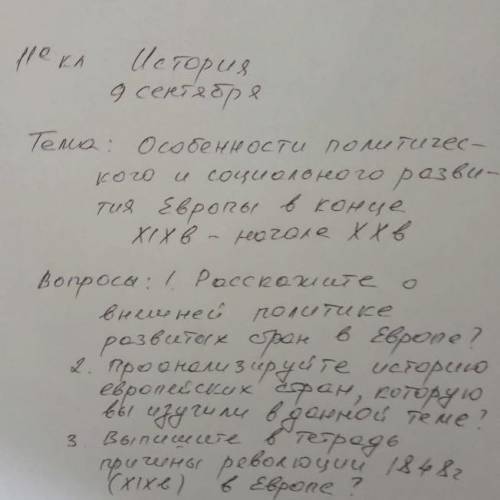 11е кл История
9 сентября
Тема: Особенности политичес-
кого и социального разви-
тия Европы в конце
XIXв - начале XXв
Вопросы: 1. Расскажите о
внешней политике
развитых стран в Европе?
2. Проанализируйте историю
европейских стран, которую
вы изучили в данной теме?
3. Выпишите в тетрадь
причины революции 1848г
(XIXв) в Европе?